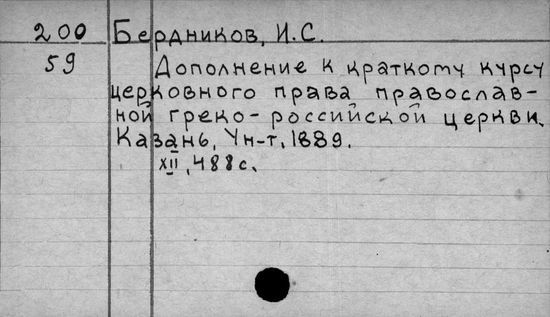 200 Бердников, И.С.
59 Дополнение к краткому курсу
церковного права православ-
ной греко-российской церкви.
Казань, Ун-т, 1889.
XII, 488 с.